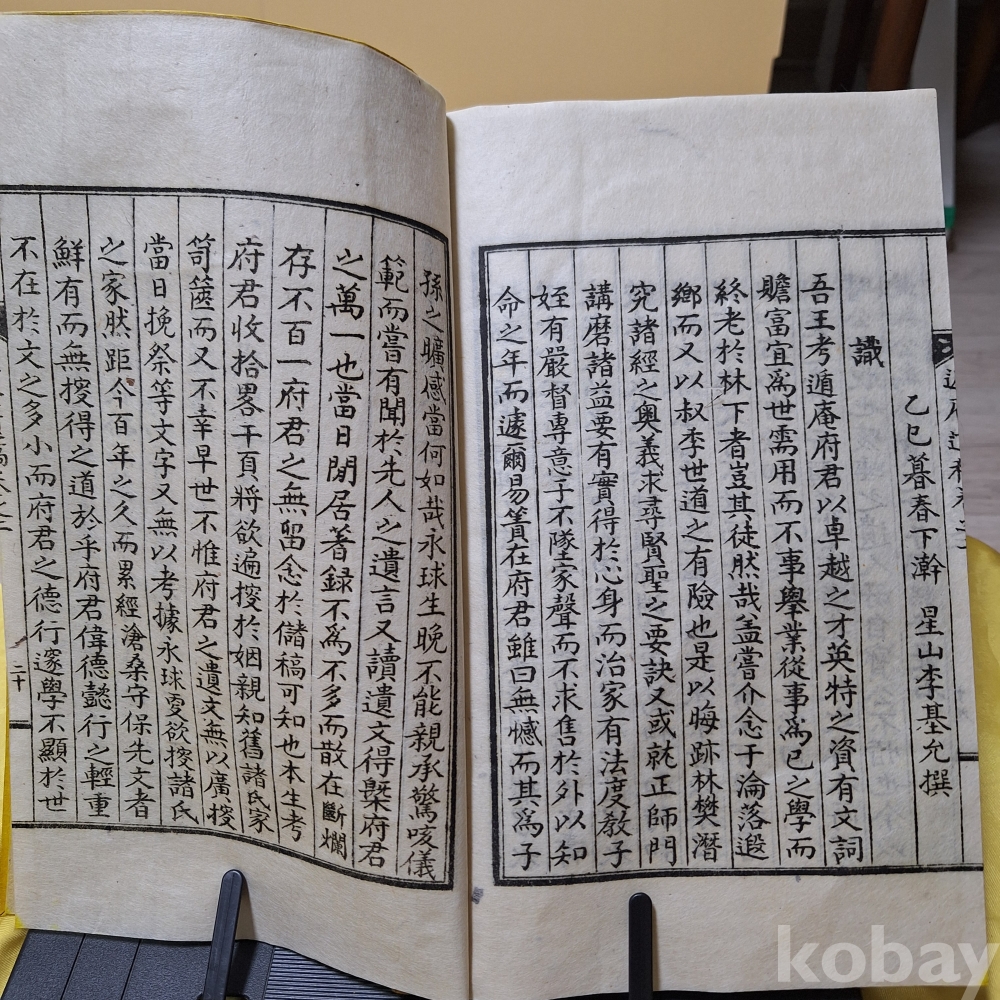 乙巳暮春下澣 星山李基允撰
識
吾王考遁庵府君以卓越之才英特之資有文詞
贍富宜爲世需用而不事擧業從事爲己之學而
終老於林下者豈其徒然哉盖嘗介念于淪落遐
鄕而又以叔季世道之有險也是以晦跡林樊潛
究諸經之奧義求尋賢聖之要訣又或就正師門
講磨諸益要有實得於心身而治家有法度敎子
姪有嚴督專意子不墜家聲而不求售於外以知
命之年而遽爾易簀在府君雖曰無憾而其爲子
孫之曠感當何如哉永球生晩不能親承驚咳儀
範而嘗有聞於先人之遺言又讀遺文得槩府君
之萬一也當日閒居著録不爲不多而散在斷爛
存不百一府君之無留念於儲稿可知也本生考
府君收拾畧干頁將欲遍搜於姻親知舊諸氏家
笥篋而又不幸早世不惟府君之遺文無以廣搜
當日挽祭等文字又無以考據永球更欲搜諸氏
之家然距今百年之久而累經滄桑守保先文者
鮮有而無搜得之道於乎府君偉德懿行之輕重
不在於文之多小而府君之德行邃學不顯於世
二十
kobay